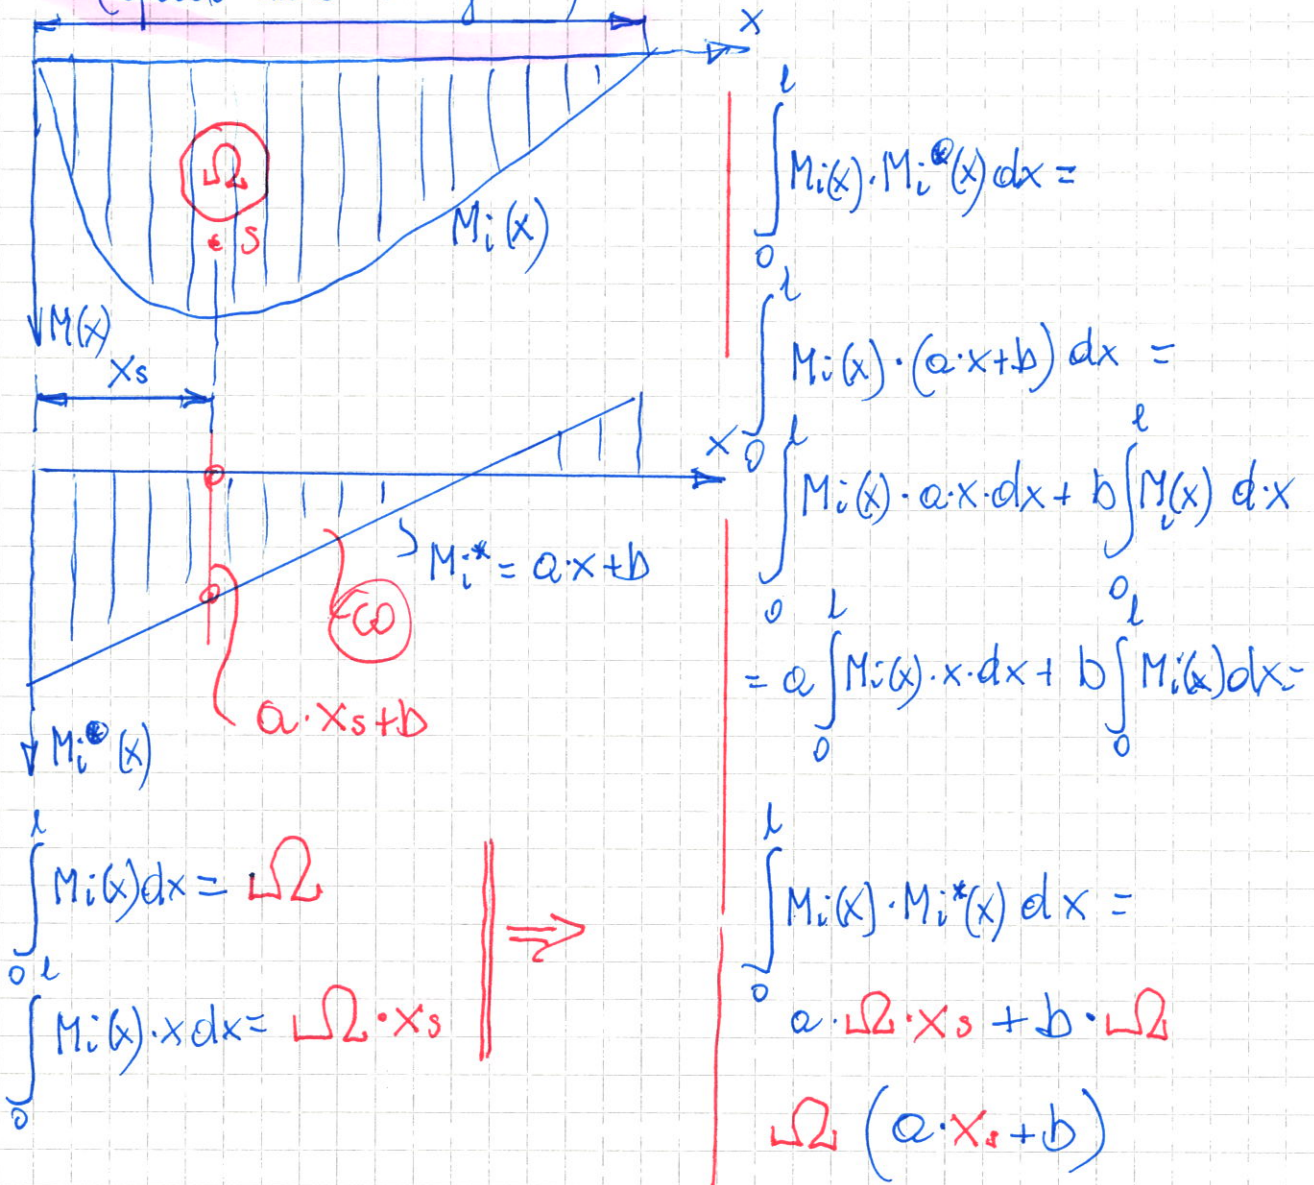 x
Ω
s
M_i(x)
M(x)
xs
x
M_i* = a·x+b
ω
a·xs+b
M_i*(x)
∫₀ˡ M_i(x)dx = Ω
∫₀ˡ M_i(x)·x dx = Ω·xs
⇒
∫₀ˡ M_i(x)·M_i*(x)dx =
∫₀ˡ M_i(x)·(a·x+b)dx =
∫₀ˡ M_i(x)·a·x·dx + b∫₀ˡ M_i(x) d·x
= a∫₀ˡ M_i(x)·x·dx + b∫₀ˡ M_i(x)dx =
∫₀ˡ M_i(x)·M_i*(x)dx =
a·Ω·xs + b·Ω
Ω (a·xs+b)